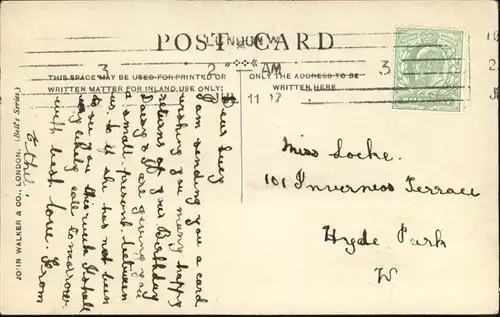 LONDON. W.
POST CARD
3
2 AM
3
JU 11 07
THIS SPACE MAY BE USED FOR PRINTED OR
WRITTEN MATTER FOR INLAND USE ONLY:
ONLY THE ADDRESS TO BE
WRITTEN HERE
Dear Lucy
I am sending you a card
wishing you many happy
returns of your Birthday
Daisy & are giving you
a small present between
us. If she has not been
to see you this week I shall
very likely call tomorrow
with best love. From
Ethel.
Miss Locke.
101 Inverness Terrace
Hyde Park
W
JOHN WALKER & CO., LONDON. (Bulb Series.)